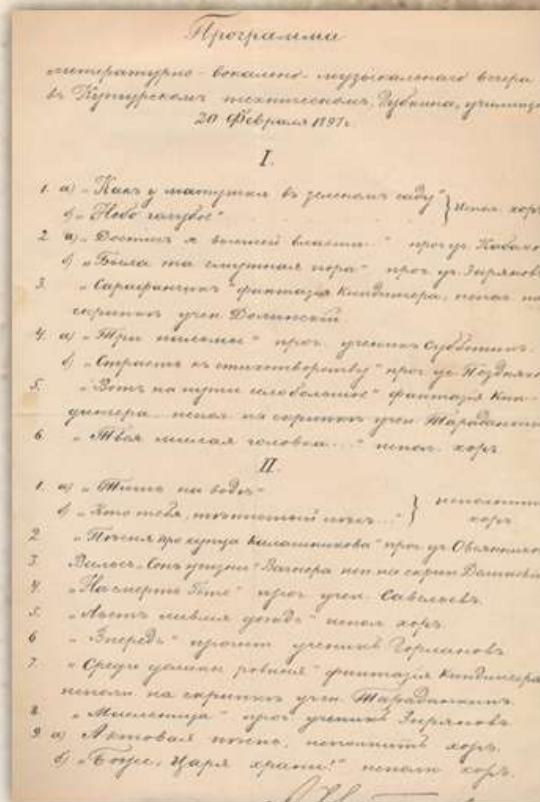 Программа
литературно-вокально-музыкальнаго вечера
въ Кунгурскомъ техническомъ, Губкина, училищѣ
20 Февраля 1897 г.
I.
1. а) „Какъ у матушки въ зеленомъ саду“ } испол. хоръ
б) „Небо голубое“
2. а) „Достигъ я высшей власти...“ проч. уч.
б) „Была та смутная пора“ проч. уч. Зыряновъ
3. „Сарафанчикъ“ фантазія Киндингера, испол. на
скрипкѣ учен. Долинскій.
4. а) „Три пальмы“ проч. ученикъ Субботинъ.
б) „Страсть къ стихотворству“ проч. уч.
5. „Вотъ на пути село большое“ фантазія Кин-
дингера. испол. на скрипкѣ учен.
6. „Твоя милая головка...“ испол. хоръ.
II.
1. а) „Тишь на водѣ“ } исполнитъ
б) „Кто тебя, тѣнистый лѣсъ...“ хоръ.
2. „Пѣсня про купца Калашникова“ проч. уч.
3. Вальсъ „Сонъ жизни“ Вагнера исп. на скрип.
4. „На смерть Гёте“ проч. учен. Савельевъ.
5. „Льетъ ливмя дождь“ испол. хоръ.
6. „Впередъ“ прочит. ученикъ
7. „Среди долины ровныя“ фантазія Киндингера
исполн. на скрипкѣ учен.
8. „Масленица“ проч. ученикъ Зыряновъ.
9. а) Актовая пѣснь, исполнитъ хоръ.
б) „Боже, Царя храни!“ исполн. хоръ.